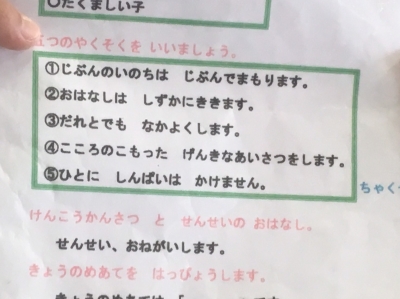 〇たくましい子
五つのやくそくを いいましょう。
①じぶんのいのちは じぶんでまもります。
②おはなしは しずかにききます。
③だれとでも なかよくします。
④こころのこもった げんきなあいさつをします。
⑤ひとに しんぱいは かけません。
ちゃく
けんこうかんさつ と せんせいの おはなし。
せんせい、おねがいします。
きょうのめあてを はっぴょうします。
きょうのめあては「